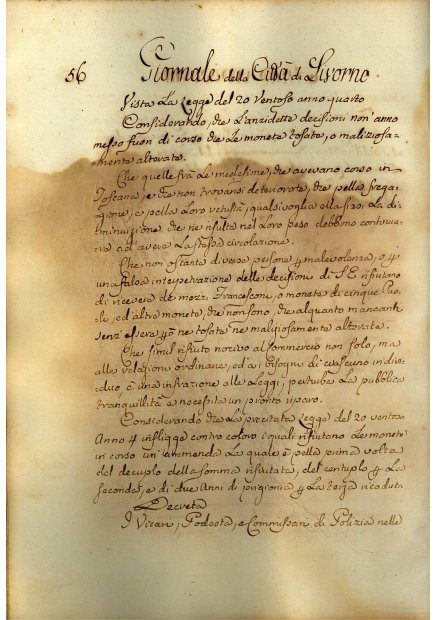 56 Giornale della Città di Livorno.
Vista La Legge del 20 Ventoso anno quarto
Considerando, che L'anzidette decisioni non anno
messo fuori di corso che Le monete tosate, o maliziosa-
-mente alterate.
Che quelle frà Le medesime, che avevano corso in
Toscana, e che non trovansi deteriorate, che pella frega-
gione, e pella Loro vetustà, qualsivoglia ella siasi La di-
minuizione che ne risulta nel Loro peso debbono continua-
-re ad avere La stessa circolazione.
Che non ostante diverse persone p malevolenza, o p
una falsa interpetrazione delle decisioni di S. E. rifiutano
di ricevere de mezzi Francesconi, o monete di cinque Pao-
li, ed altre monete, che non sono, che alquanto mancanti
senz' essere p ò ne tosate ne malgiosamente alterate.
Che simil rifiuto nocivo al Commercio non solo, ma
alle relazioni ordinarie, ed a i bisogni di ciascuno indivi-
duo è una infrazione alle Leggi, perturba La pubblica
tranquillità e necessita un pronto riparo.
Considerando che La precitata Legge del 20 ventoso
Anno 4 infligge contro coloro i quali rifiutano Le monete
in corso un' emmenda La quale è pella prima volta
del decuplo della somma rifiutata, del centuplo p La
seconda, e di due Anni di prigionia p La terza ricaduta
Decreta
I Vicari, Podestà, e Commissari di Polizia nelle